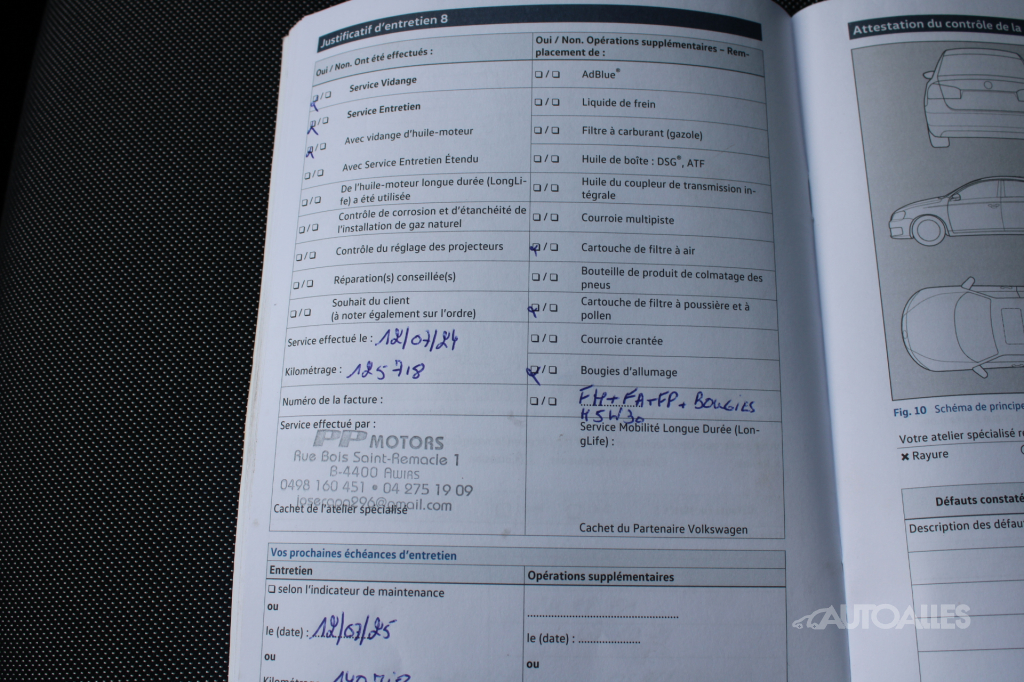 Justificatif d'entretien 8
Oui / Non. Ont été effectués :
❑ / ❑ Service Vidange
❑ / ❑ Service Entretien
❑ / ❑ Avec vidange d'huile-moteur
❑ / ❑ Avec Service Entretien Étendu
❑ / ❑ De l'huile-moteur longue durée (LongLi-
fe) a été utilisée
❑ / ❑ Contrôle de corrosion et d'étanchéité de
l'installation de gaz naturel
❑ / ❑ Contrôle du réglage des projecteurs
❑ / ❑ Réparation(s) conseillée(s)
❑ / ❑ Souhait du client
(à noter également sur l'ordre)
Service effectué le : 12/07/24
Kilométrage : 125 718
Numéro de la facture :
Service effectué par :
PP MOTORS
Rue Bois Saint-Remacle 1
B-4400 AWIRS
0498 160 451 • 04 275 19 09
Cachet de l'atelier spécialisé
Oui / Non. Opérations supplémentaires – Rem-
placement de :
❑ / ❑ AdBlue®
❑ / ❑ Liquide de frein
❑ / ❑ Filtre à carburant (gazole)
❑ / ❑ Huile de boîte : DSG®, ATF
❑ / ❑ Huile du coupleur de transmission in-
tégrale
❑ / ❑ Courroie multipiste
❑ / ❑ Cartouche de filtre à air
❑ / ❑ Bouteille de produit de colmatage des
pneus
❑ / ❑ Cartouche de filtre à poussière et à
pollen
❑ / ❑ Courroie crantée
❑ / ❑ Bougies d'allumage
❑ / ❑ FH+FA+FP+BOUGIES
5W30
Service Mobilité Longue Durée (Lon-
gLife) :
Cachet du Partenaire Volkswagen
Vos prochaines échéances d'entretien
Entretien
❑ selon l'indicateur de maintenance
ou
le (date) : 12/07/25
ou
Kilométrage
Opérations supplémentaires
le (date) : ....................
ou
Attestation du contrôle de la
Fig. 10 Schéma de principe
Votre atelier spécialisé
✖ Rayure
Défauts constaté
Description des défau
AUTOALLES